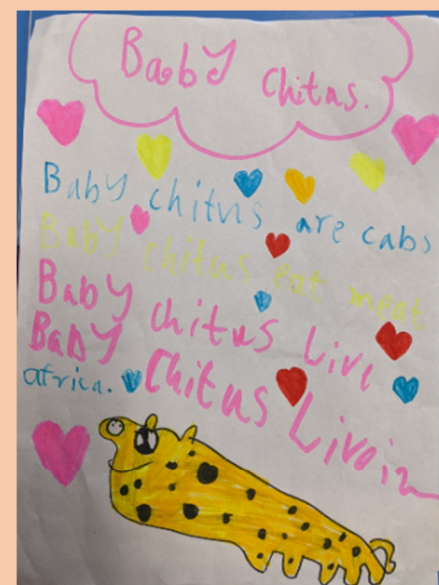 Baby Chitas.
Baby chitus are cabs
Baby chitus eat meat
Baby chitus Live
Baby Chitus Live in
africa.